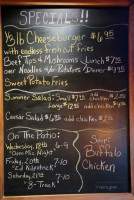 SPECIALS!!
1/3 lb Cheeseburger $6.95
with endless fresh cut fries
Beef Tips & Mushrooms Lunch $7.95
over Noodles or Potatoes Dinner $9.95
Sweet Potato Fries
Summer Salad: Small $7.95 add chicken
Large $
Caesar Salad $6.95 add chicken $2
On The Patio:
Wednesday, 18th 6-9
"Open Mic Night"
Friday, 20th 7-10
Saturday, 21st 7-10
8-Track
Soup:
Buffalo
Chicken